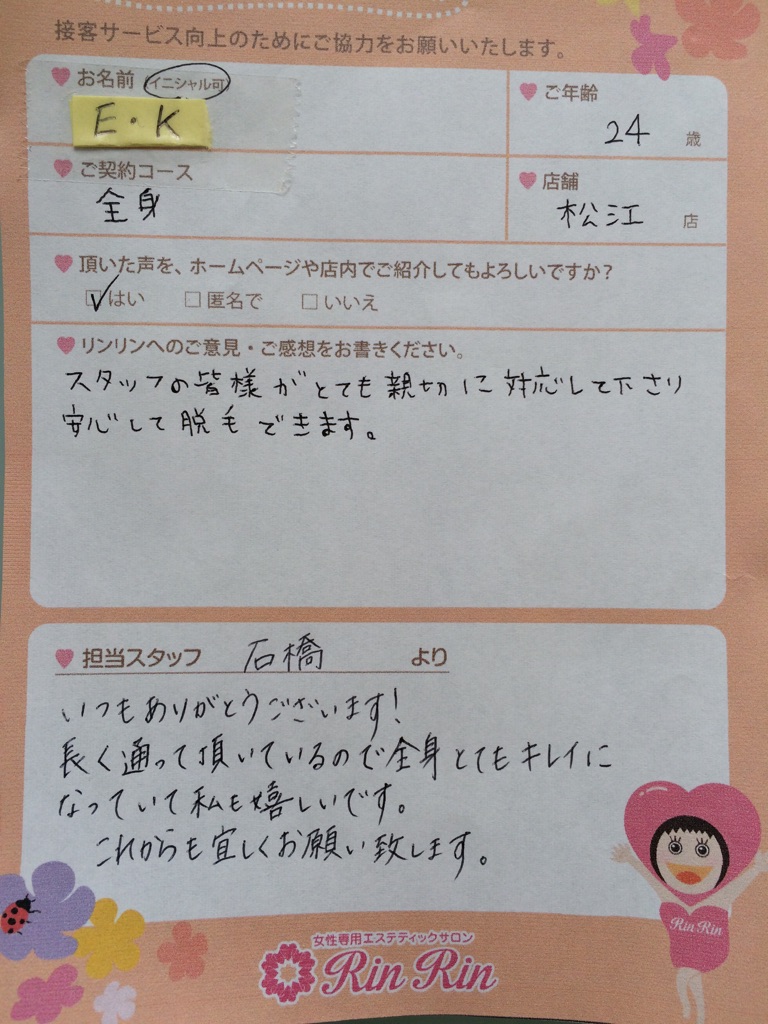 接客サービス向上のためにご協力をお願いいたします。
お名前 イニシャル可
E・K
ご年齢
24 歳
ご契約コース
全身
店舗
松江 店
頂いた声を、ホームページや店内でご紹介してもよろしいですか？
はい 匿名で いいえ
リンリンへのご意見・ご感想をお書きください。
スタッフの皆様がとても親切に対応して下さり
安心して脱毛できます。
担当スタッフ 石橋 より
いつもありがとうございます！
長く通って頂いているので全身とてもキレイに
なっていて私も嬉しいです。
これからも宜しくお願い致します。
Rin Rin
女性専用エステティックサロン
Rin Rin